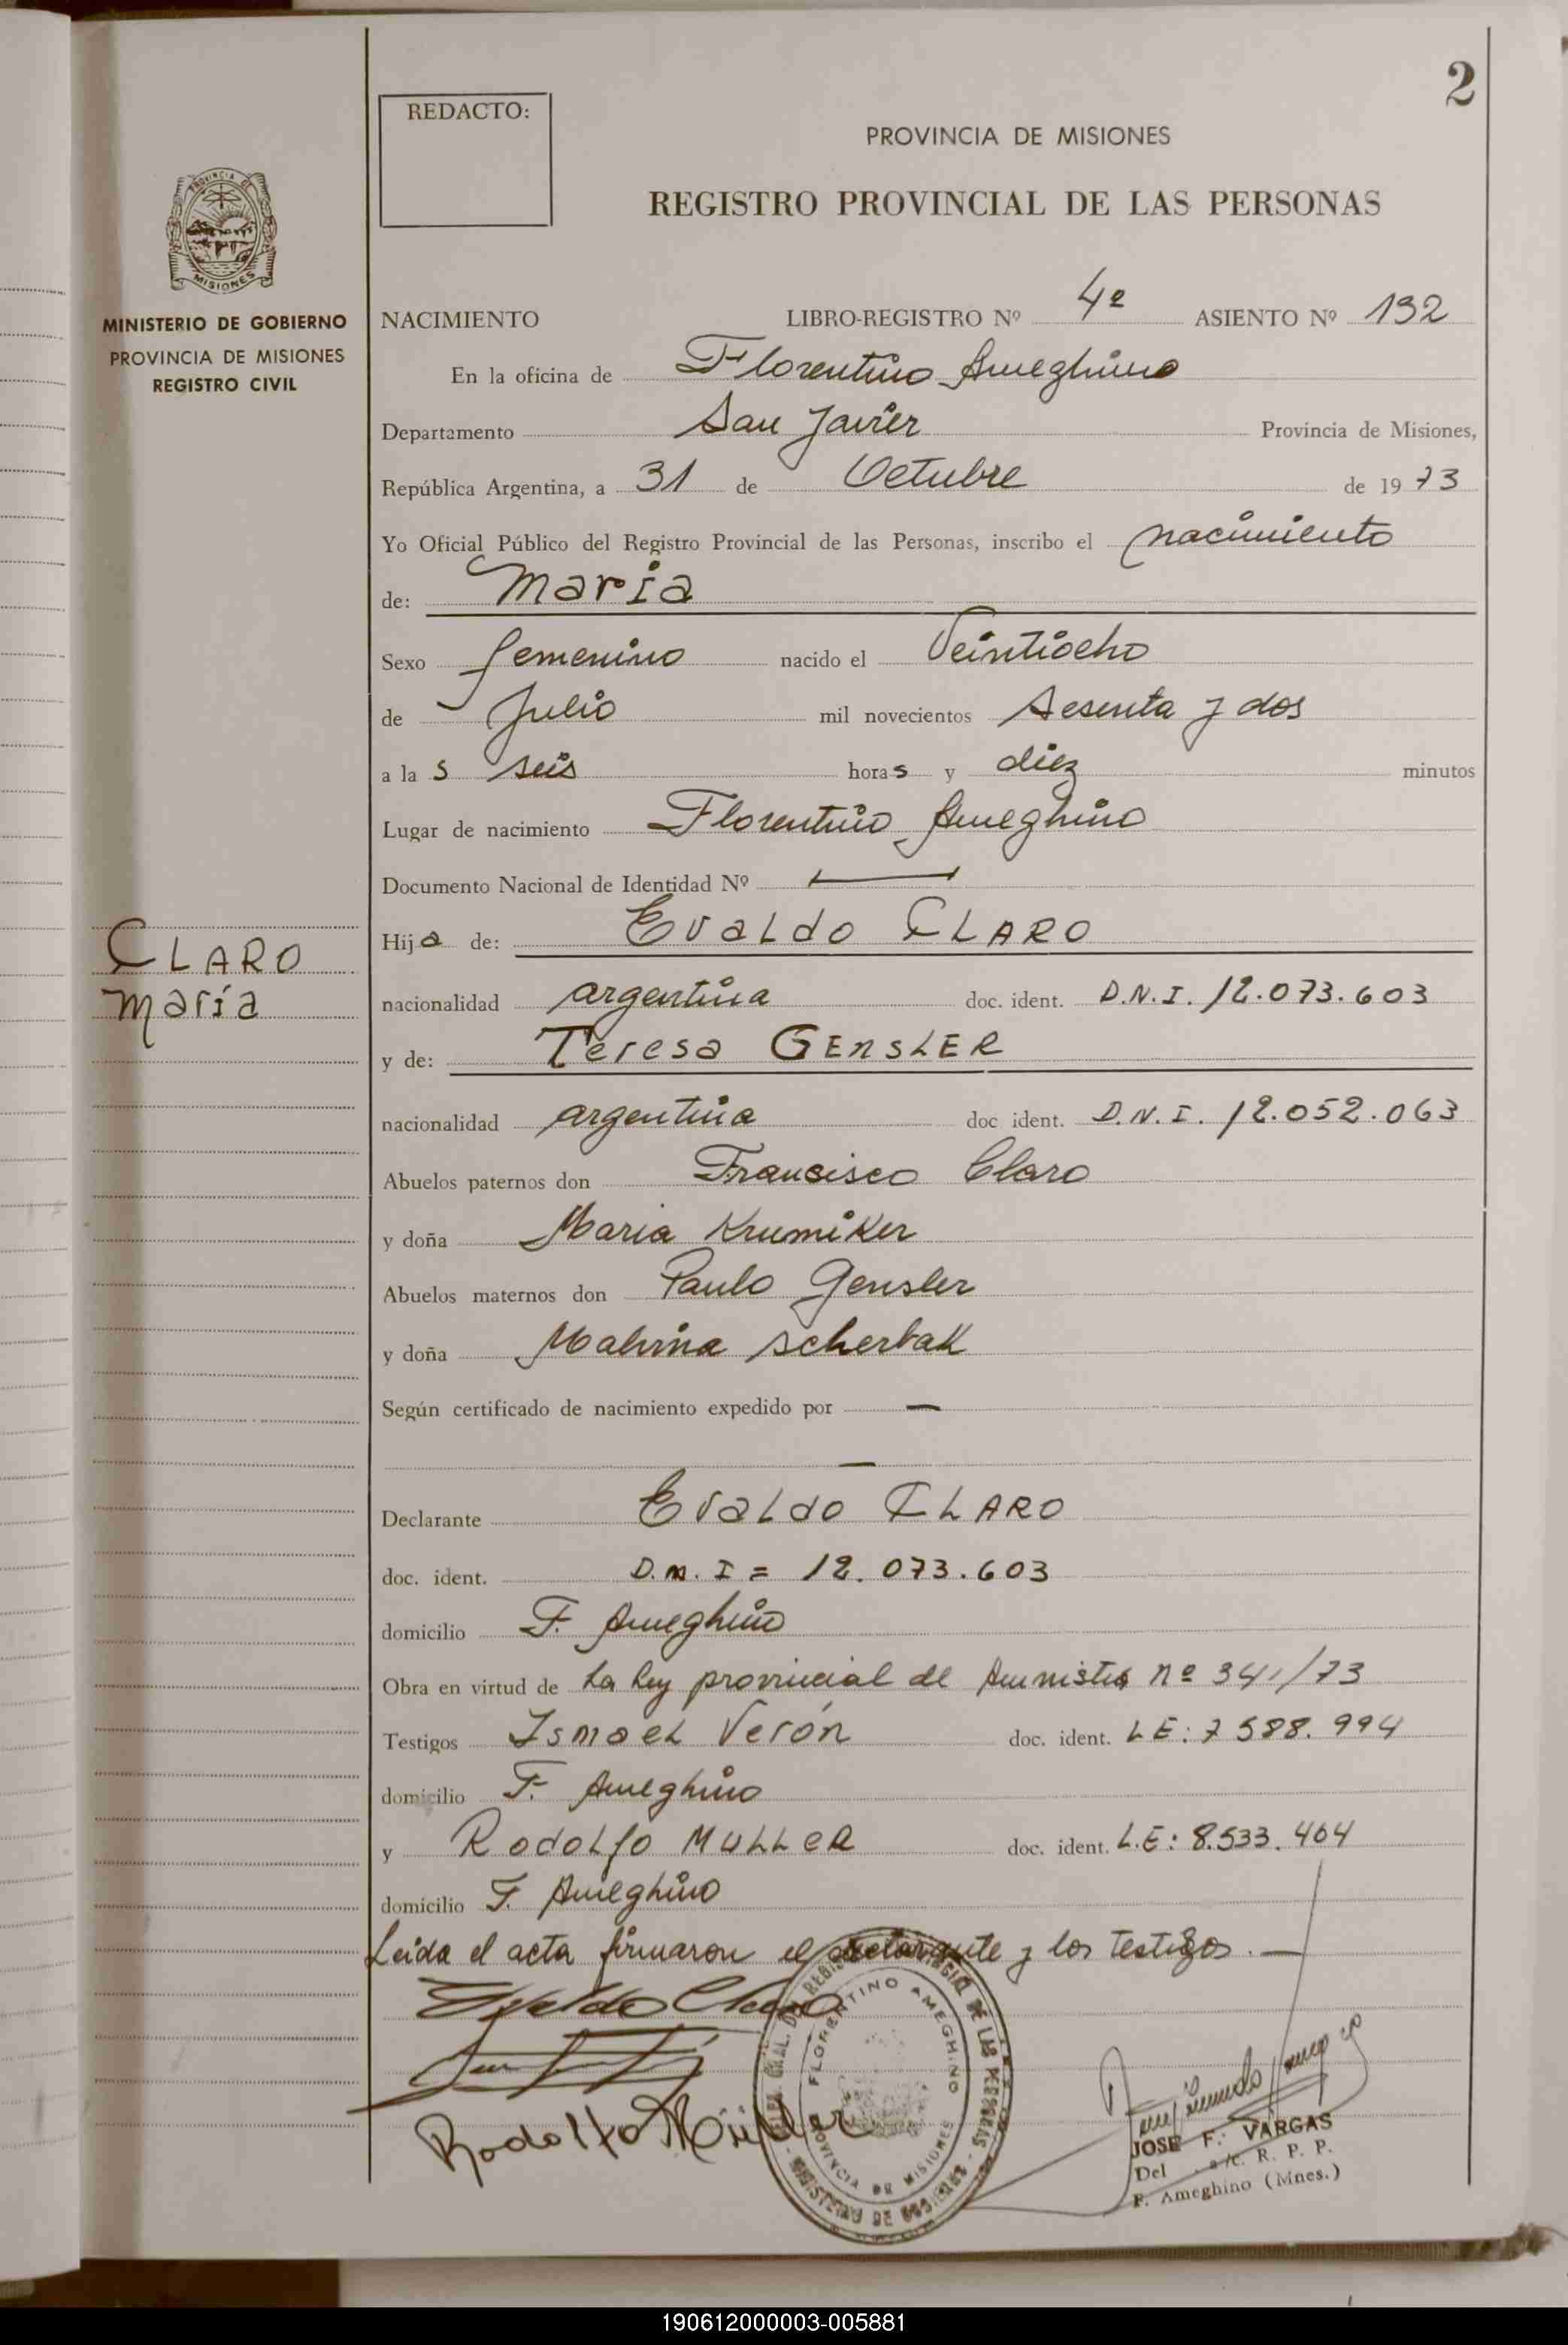 2
REDACTO:
PROVINCIA DE MISIONES
REGISTRO PROVINCIAL DE LAS PERSONAS
PROVINCIA DE
MISIONES
MINISTERIO DE GOBIERNO
PROVINCIA DE MISIONES
REGISTRO CIVIL
NACIMIENTO LIBRO-REGISTRO Nº 4º ASIENTO Nº 132
En la oficina de Florentino Ameghino
Departamento San Javier Provincia de Misiones,
República Argentina, a 31 de Octubre de 1973
Yo Oficial Público del Registro Provincial de las Personas, inscribo el nacimiento
de: Maria
Sexo femenino nacido el Veintiocho
de Julio mil novecientos sesenta y dos
a las seis horas y diez minutos
Lugar de nacimiento Florentino Ameghino
Documento Nacional de Identidad Nº —
Hija de: Evaldo CLARO
CLARO
María
nacionalidad argentina doc. ident. D.N.I. 12.073.603
y de: Teresa GENSLER
nacionalidad argentina doc ident. D.N.I. 12.052.063
Abuelos paternos don Francisco Claro
y doña Maria Krumiker
Abuelos maternos don Paulo Gensler
y doña Malvina scherbak
Según certificado de nacimiento expedido por —
—
Declarante Evaldo CLARO
doc. ident. D.N.I = 12.073.603
domicilio F. Ameghino
Obra en virtud de La Ley provincial de Amnistia nº 341/73
Testigos Ismael Verón doc. ident. LE: 7588.994
domicilio F. Ameghino
y Rodolfo MULLER doc. ident. L.E: 8.533.464
domicilio F. Ameghino
Leida el acta firmaron el declarante y los testigos. —
Evaldo Claro
Rodolfo Müller
FLORENTINO AMEGHINO
PROVINCIA DE MISIONES
MINISTERIO DE GOBIERNO
JOSE F. VARGAS
Del a/c. R. P. P.
F. Ameghino (Mnes.)
190612000003-005881